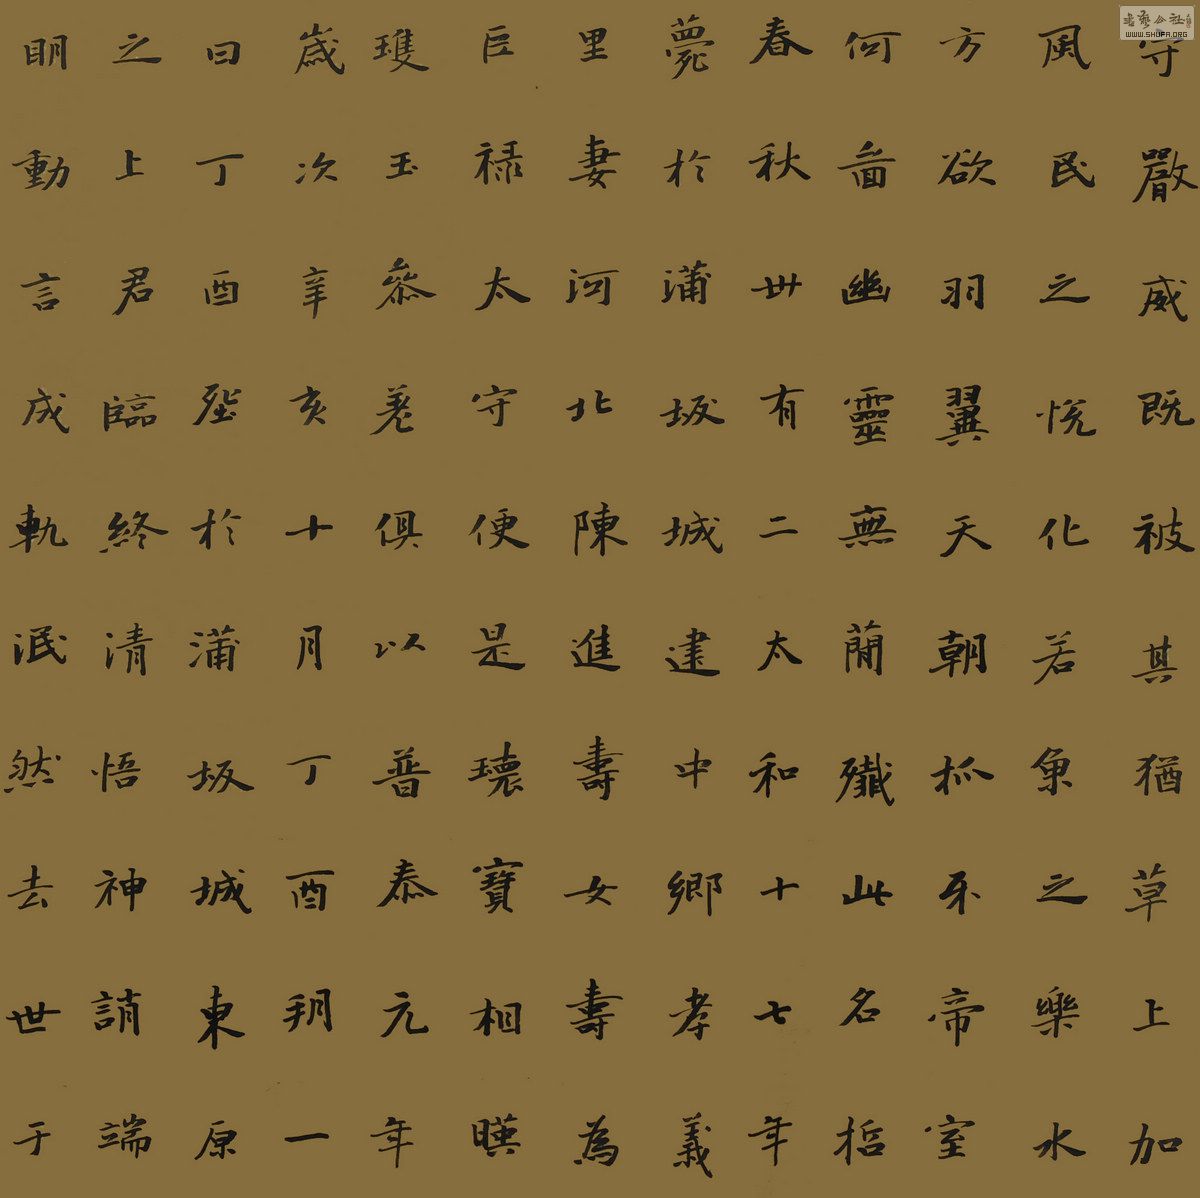 书艺公社
WWW.SHUFA.ORG
守嚴威既被其猶草上加
風民之悅化若魚之樂水
方欲羽翼天朝抓牙帝室
何啚幽靈無蕳殲此名哲
春秋卌有二太和十七年
薨於蒲坂城建中鄉孝義
里妻河北陳進壽女壽為
巨祿太守便是瓌寶相暎
瓊玉參差俱以普泰元年
歲次辛亥十月丁酉朔一
日丁酉塟於蒲坂城東原
之上君臨終清悟神誚端
明動言成軌泯然去世于